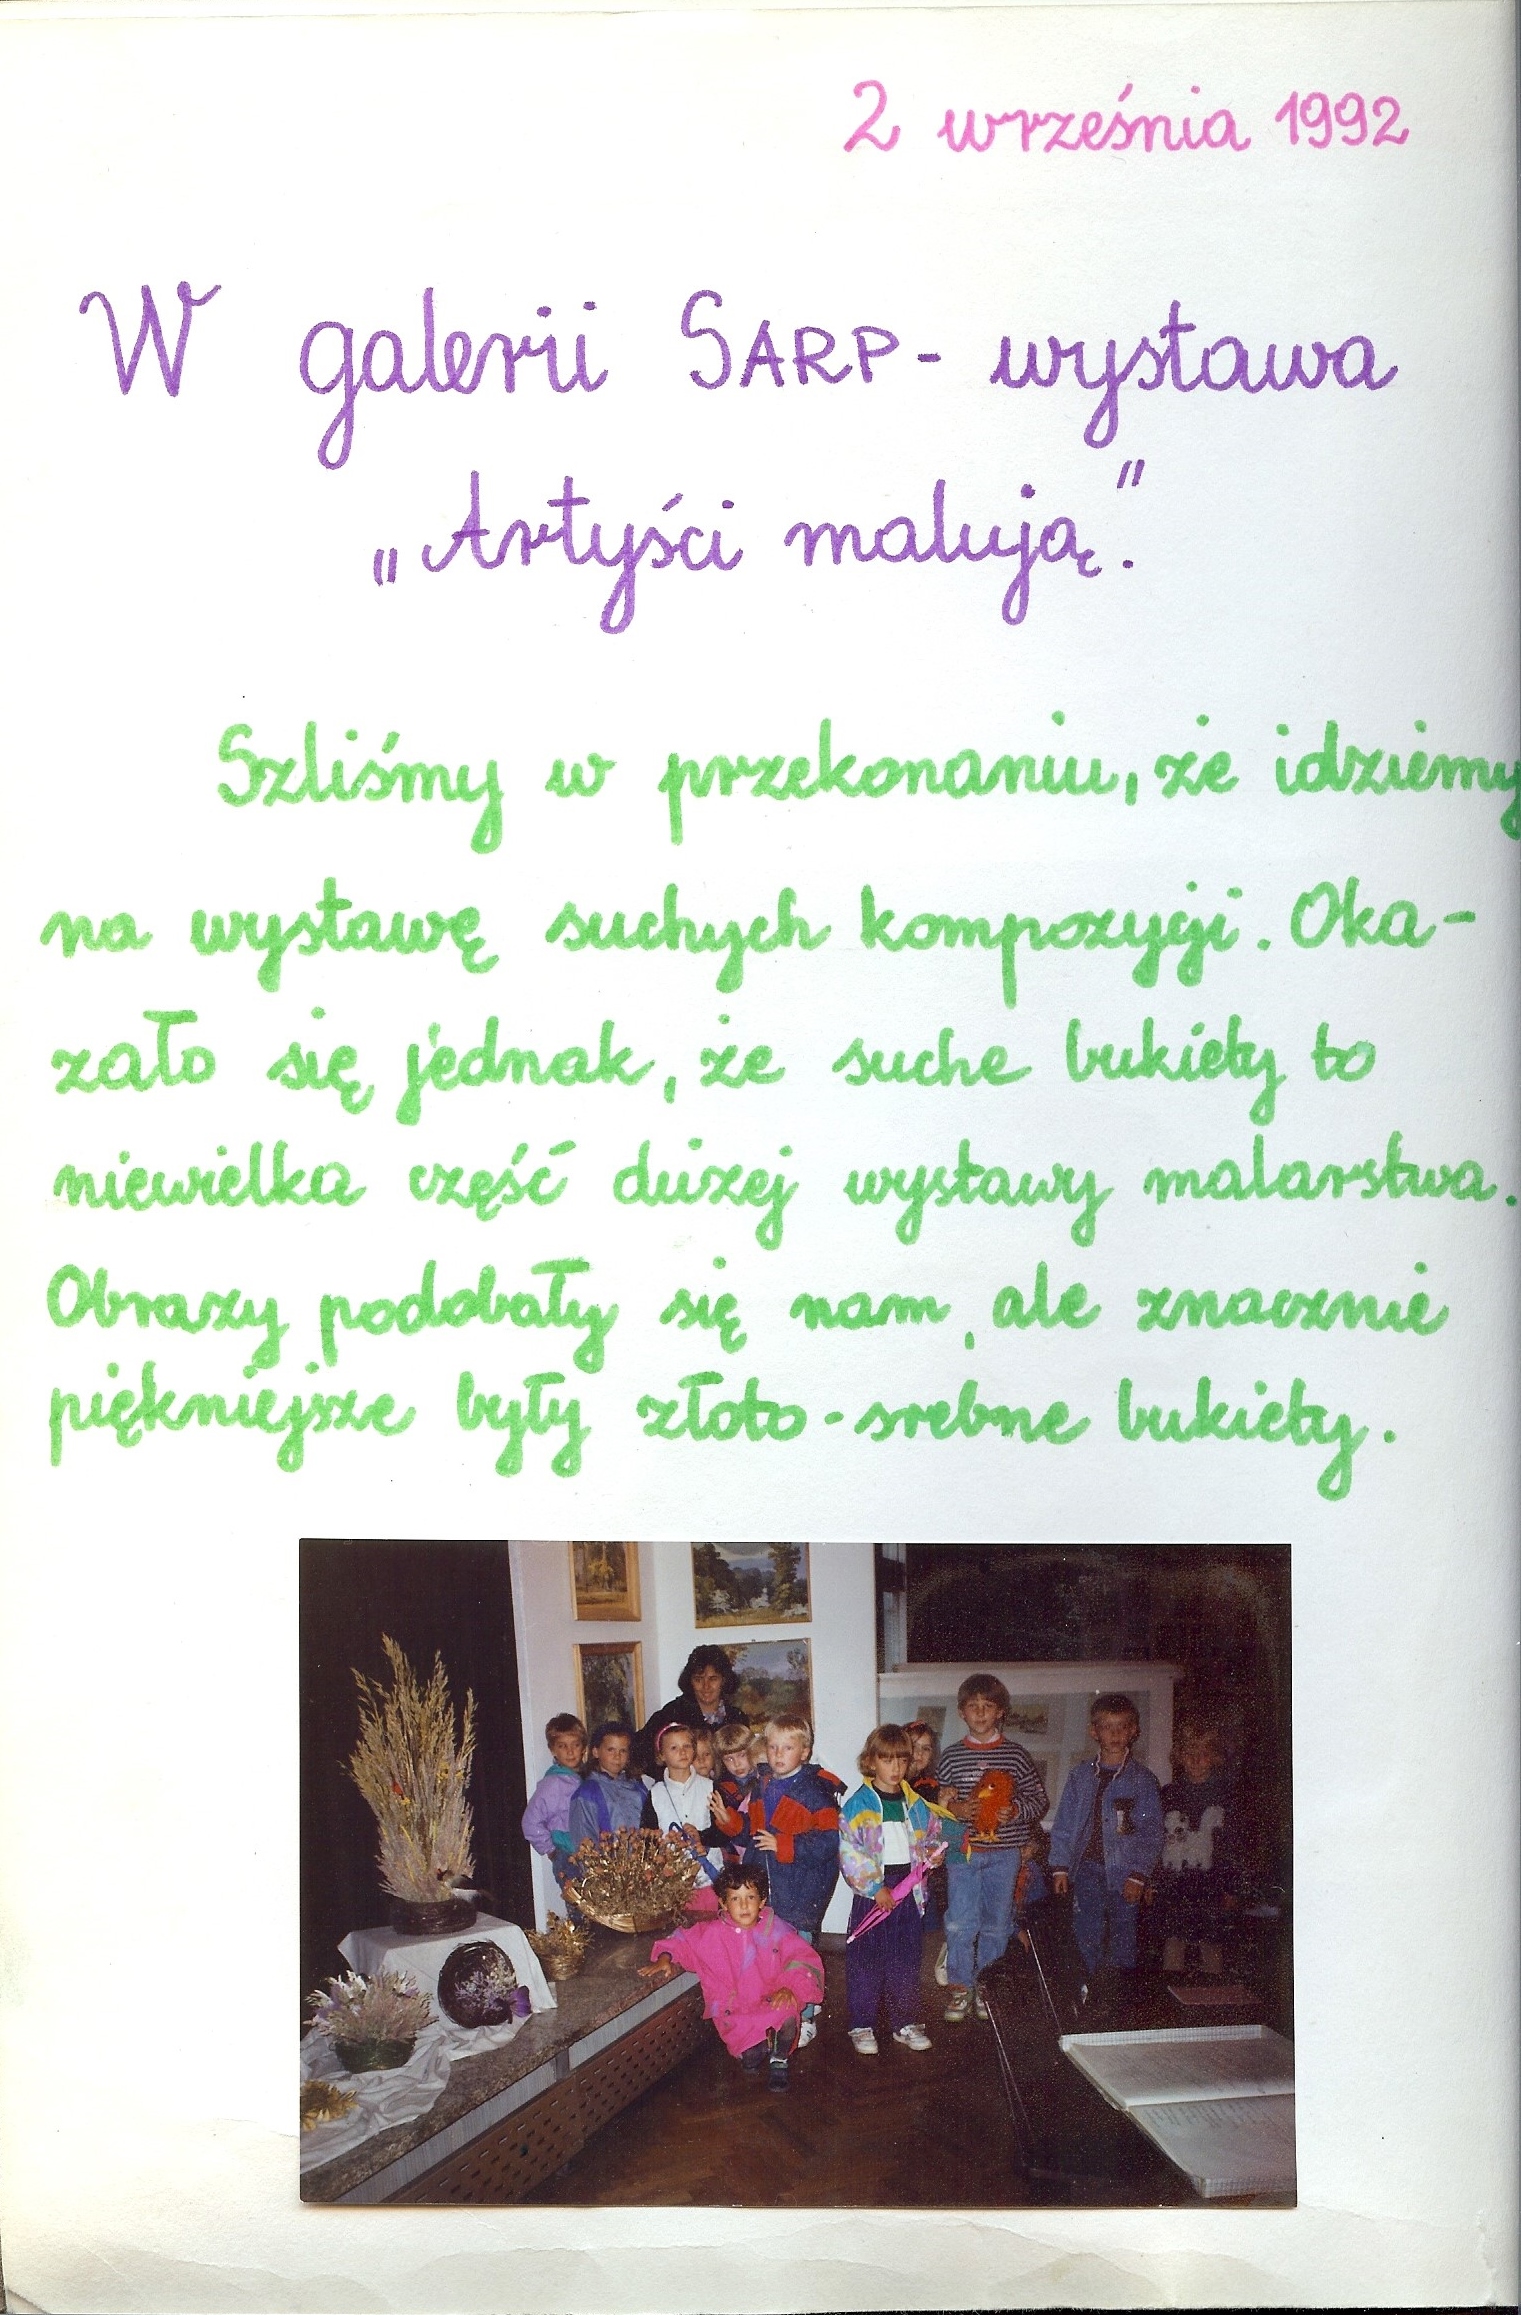 2 września 1992
W galerii SARP - wystawa
„Artyści malują."
Szliśmy w przekonaniu, że idziemy
na wystawę suchych kompozycji. Oka-
zało się jednak, że suche bukiety to
niewielka część dużej wystawy malarstwa.
Obrazy podobały się nam, ale znacznie
piękniejsze były złoto-srebne bukiety.